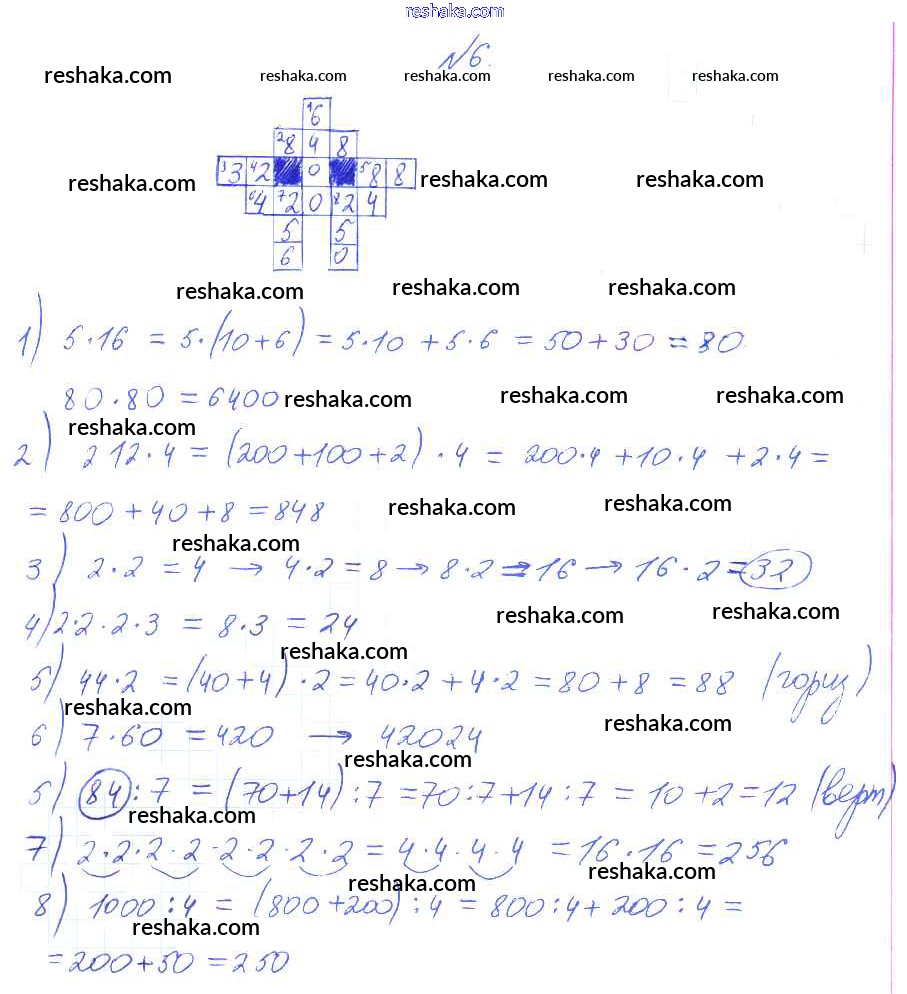 reshaka.com
№6.
reshaka.com reshaka.com reshaka.com reshaka.com reshaka.com
1 6
2 8 4 8
3 3 4 2 0 5 8 8
reshaka.com reshaka.com reshaka.com
6 4 7 2 0 8 2 4
5 5
6 0
reshaka.com reshaka.com reshaka.com
1) 5·16 = 5·(10+6) = 5·10 + 5·6 = 50+30 = 80.
80·80 = 6400 reshaka.com reshaka.com reshaka.com
reshaka.com
2) 212·4 = (200+100+2)·4 = 200·4 +10·4 +2·4 =
= 800 + 40 + 8 = 848 reshaka.com reshaka.com
reshaka.com
3) 2·2 = 4 → 4·2 = 8 → 8·2 = 16 → 16·2 = 32
4) 2·2·2·3 = 8·3 = 24 reshaka.com reshaka.com
reshaka.com
5) 44·2 = (40+4)·2 = 40·2 + 4·2 = 80 + 8 = 88 (гориз)
reshaka.com reshaka.com
6) 7·60 = 420 → 42024
reshaka.com
5) 84:7 = (70+14):7 = 70:7+14:7 = 10+2=12 (верт)
reshaka.com
7) 2·2·2·2·2·2·2·2 = 4·4·4·4 = 16·16 = 256
reshaka.com reshaka.com
8) 1000:4 = (800+200):4 = 800:4+200:4 =
reshaka.com
= 200+50 = 250